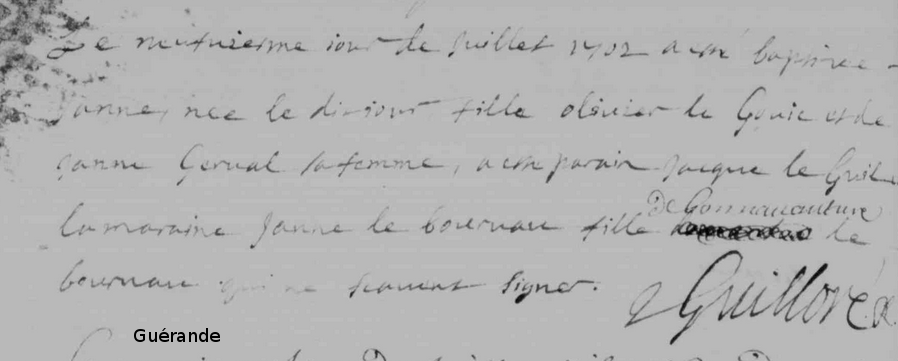 Le neufuiesme iour de Juillet 1702 a esté baptisee
Janne, nee le dit iour fille olivier le Gouic et de
Janne Gerual sa femme, a esté parain Jacque le Guil
la maraine Janne le bournau fille
De Bonnauanture
le
bournau qui ne scauent signer.
Guilloré
Guérande